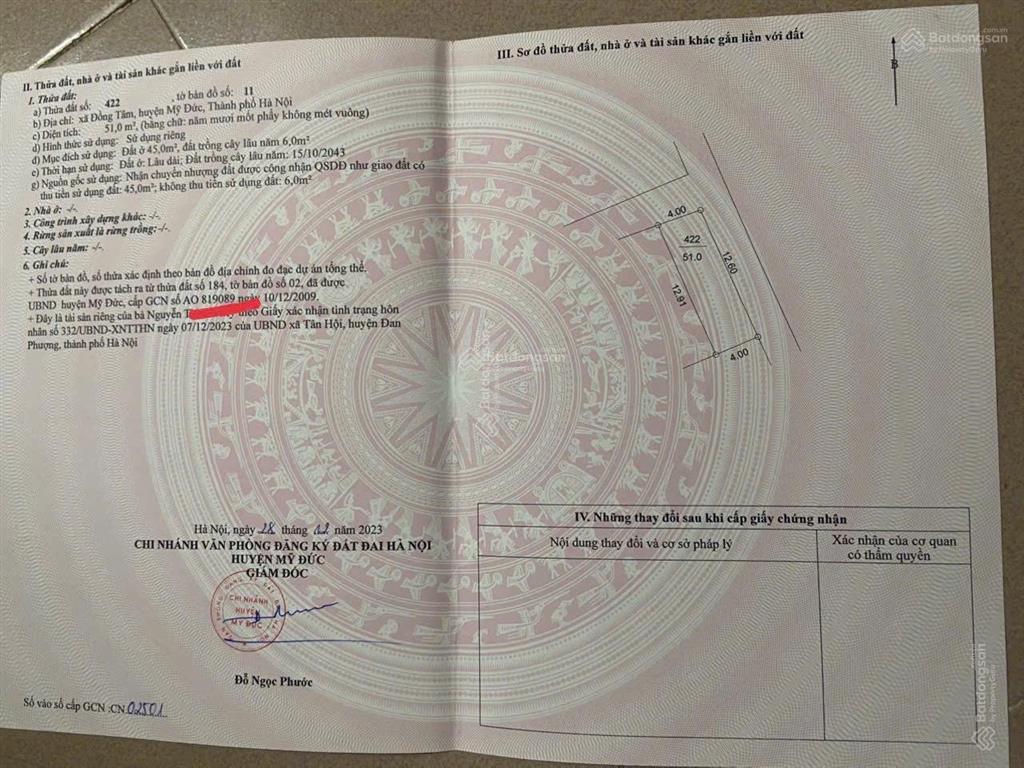 II. Thửa đất, nhà ở và tài sản khác gắn liền với đất
1. Thửa đất:
a) Thửa đất số: 422 , tờ bản đồ số: 11
b) Địa chỉ: xã Đồng Tâm, huyện Mỹ Đức, Thành phố Hà Nội
c) Diện tích: 51,0 m², (bằng chữ: năm mươi mốt phẩy không mét vuông)
d) Hình thức sử dụng: Sử dụng riêng
đ) Mục đích sử dụng: Đất ở 45,0m², đất trồng cây lâu năm 6,0m²
e) Thời hạn sử dụng: Đất ở: Lâu dài; Đất trồng cây lâu năm: 15/10/2043
g) Nguồn gốc sử dụng: Nhận chuyển nhượng đất được công nhận QSDĐ như giao đất có
thu tiền sử dụng đất: 45,0m²; không thu tiền sử dụng đất: 6,0m²
2. Nhà ở: -/-.
3. Công trình xây dựng khác: -/-.
4. Rừng sản xuất là rừng trồng:-/-.
5. Cây lâu năm: -/-.
6. Ghi chú:
+ Số tờ bản đồ, số thửa xác định theo bản đồ địa chính đo đạc dự án tổng thể.
+ Thửa đất này được tách ra từ thửa đất số 184, tờ bản đồ số 02, đã được
UBND huyện Mỹ Đức, cấp GCN số AO 819089 ngày 10/12/2009.
+ Đây là tài sản riêng của bà Nguyễn theo Giấy xác nhận tình trạng hôn
nhân số 332/UBND-XNTTHN ngày 07/12/2023 của UBND xã Tân Hội, huyện Đan
Phượng, thành phố Hà Nội
Hà Nội, ngày 28 tháng 12 năm 2023
CHI NHÁNH VĂN PHÒNG ĐĂNG KÝ ĐẤT ĐAI HÀ NỘI
HUYỆN MỸ ĐỨC
GIÁM ĐỐC
CHI NHÁNH
HUYỆN
MỸ ĐỨC
Đỗ Ngọc Phước
Số vào sổ cấp GCN :CN 02501
III. Sơ đồ thửa đất, nhà ở và tài sản khác gắn liền với đất
B
4.00
422
51.0
12.60
12.91
4.00
IV. Những thay đổi sau khi cấp giấy chứng nhận
Nội dung thay đổi và cơ sở pháp lý
Xác nhận của cơ quan
có thẩm quyền
Batdongsan
by PropertyGuru
Batdongsan
Batdongsan
by PropertyGuru